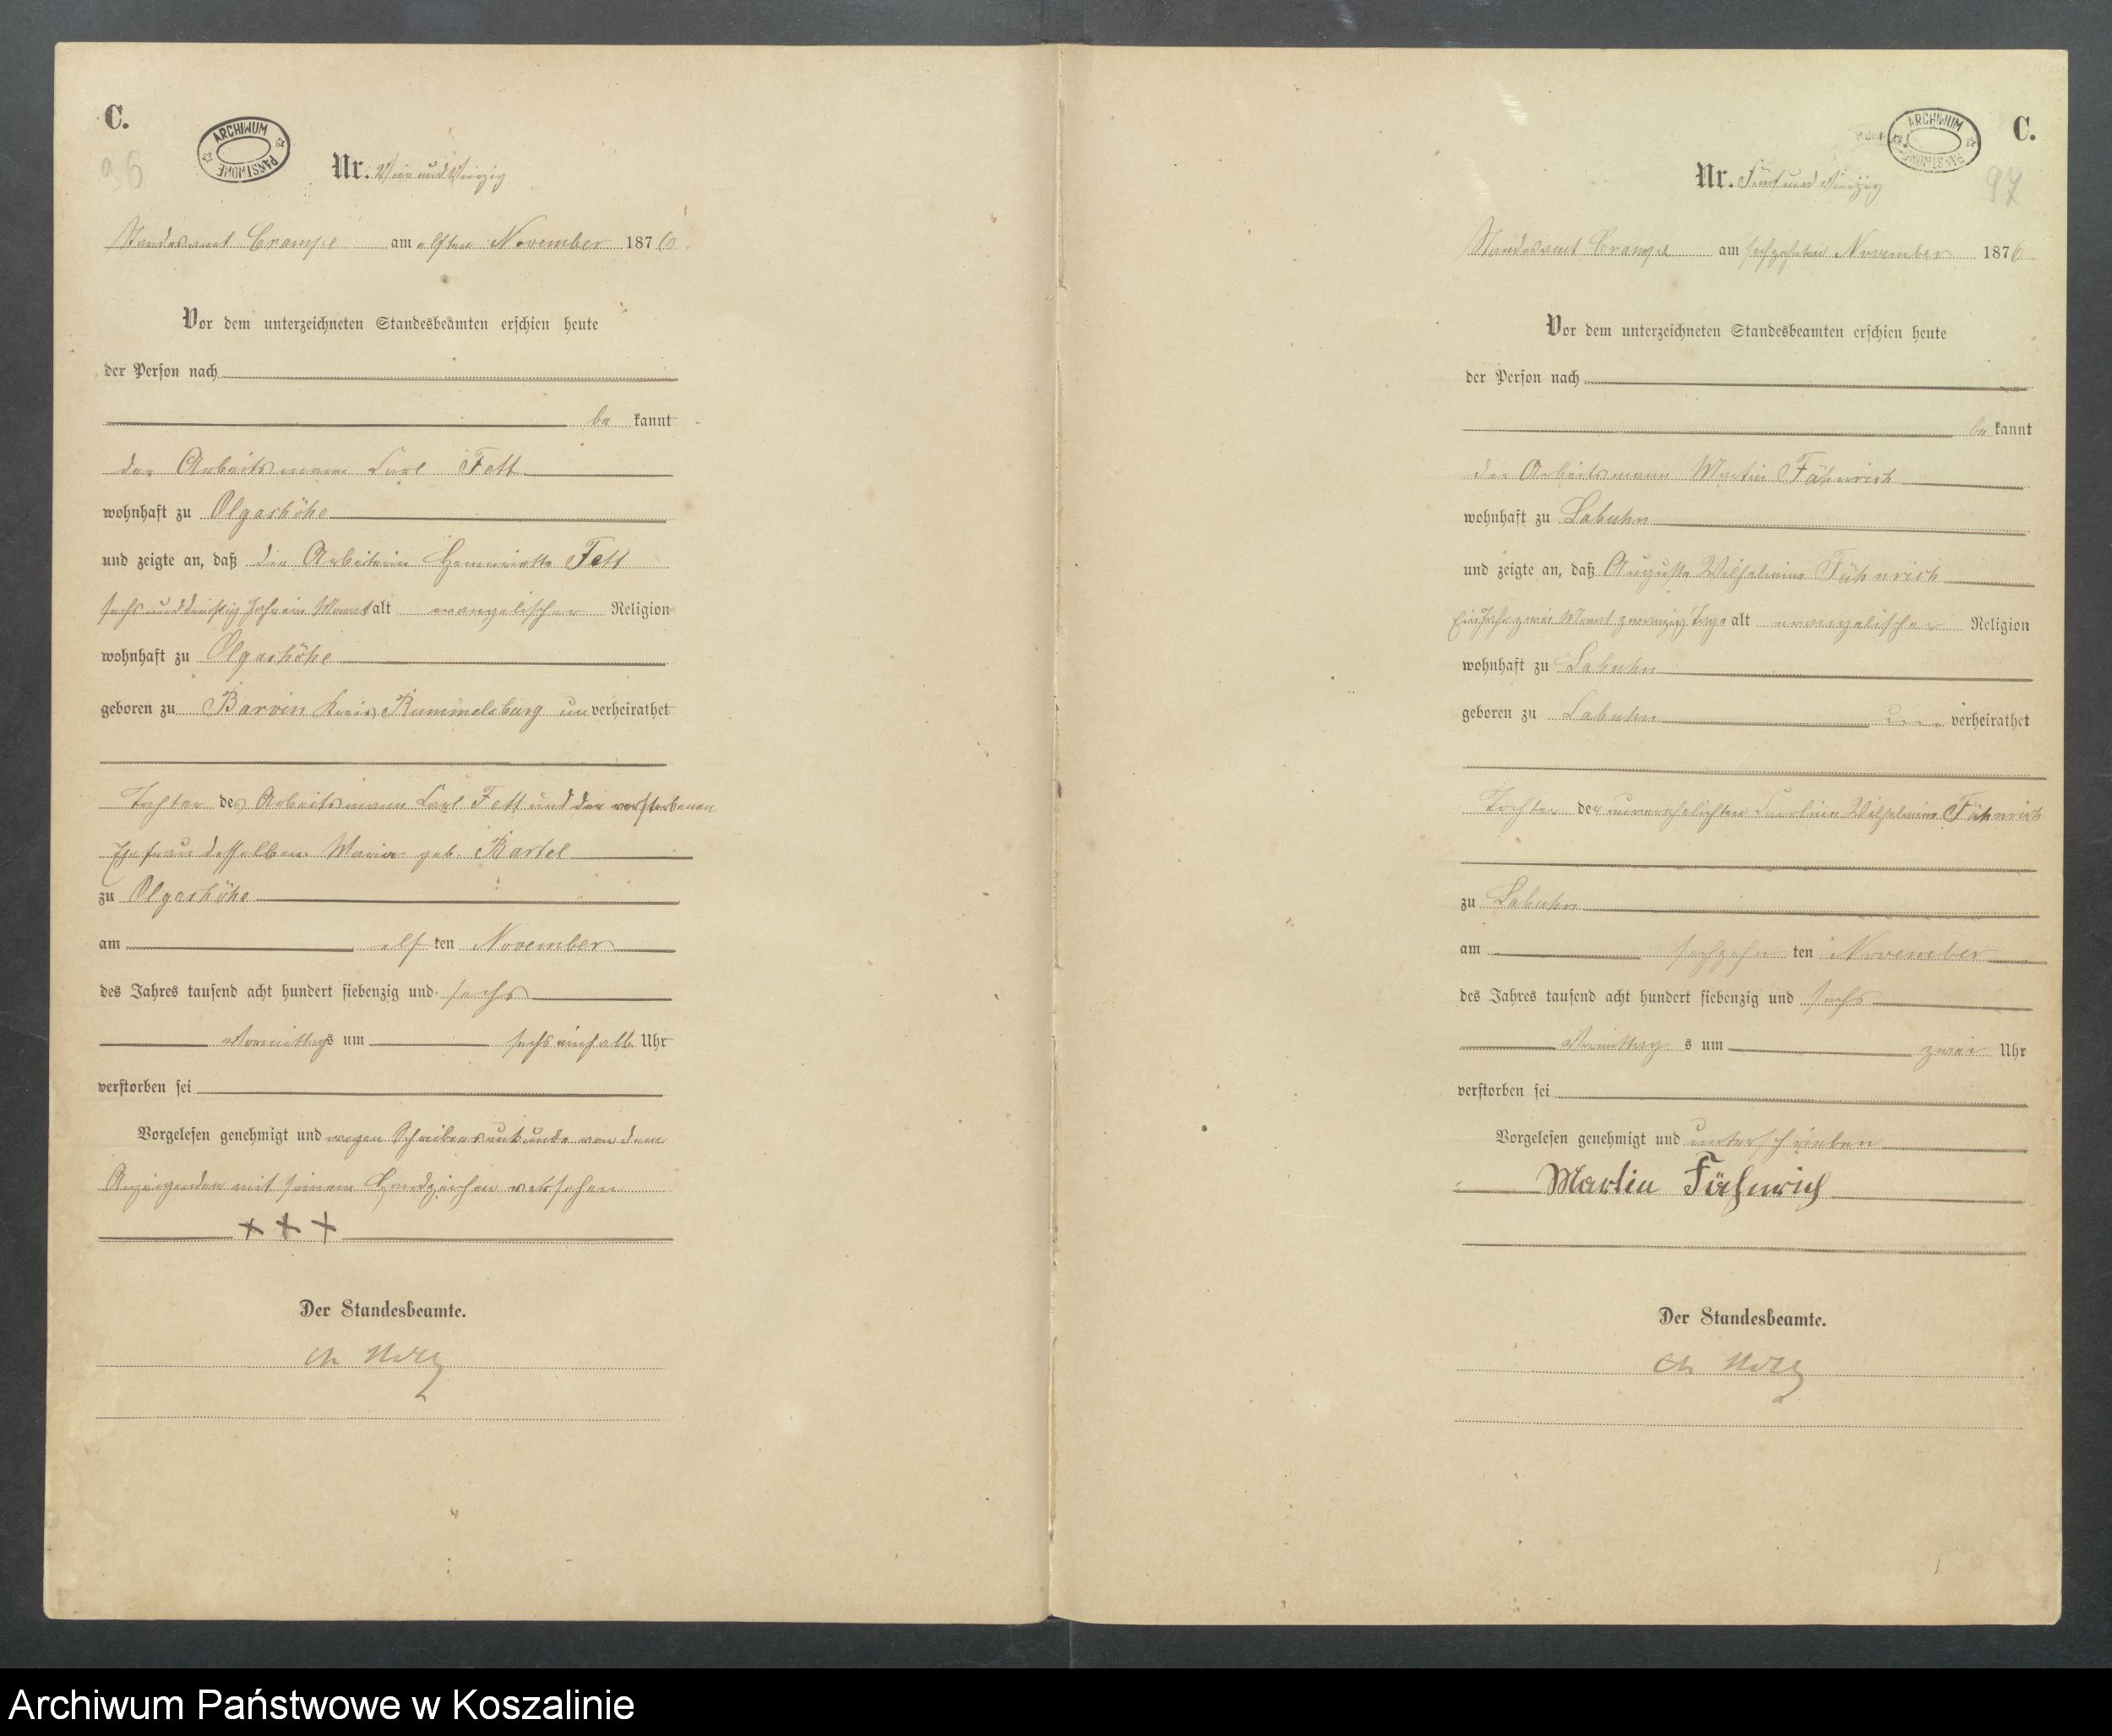 C.
ARCHIWUM PAŃSTWOWE
96
Nr. Vier und Vierzig
Standesamt Crampe am elften November 1876.
Vor dem unterzeichneten Standesbeamten erschien heute
der Person nach
be kannt
der Arbeitsmann Carl Fett
wohnhaft zu Olgashöhe
und zeigte an, daß die Arbeiterin Henriette Fett
sechs und dreißig Jahr ein Monat alt evangelischer Religion
wohnhaft zu Olgashöhe
geboren zu Barvin Kreis Rummelsburg un verheirathet
Tochter des Arbeitsmann Carl Fett und der verstorbenen
Ehefrau desselben Marie geb. Bartel
zu Olgashöhe
am elf ten November
des Jahres tausend acht hundert siebenzig und sechs
Vormittags um sechs einhalb Uhr
verstorben sei
Vorgelesen genehmigt und wegen Schreibensunkunde von dem
Anzeigenden mit seinem Handzeichen versehen
+ + +
Der Standesbeamte.
C.
ARCHIWUM PAŃSTWOWE
97
Nr. Fünf und Vierzig
Standesamt Crampe am sechzehnten November 1876
Vor dem unterzeichneten Standesbeamten erschien heute
der Person nach
be kannt
der Arbeitsmann Martin Fähnrich
wohnhaft zu Labuhn
und zeigte an, daß Auguste Wilhelmine Fähnrich
Ein Jahr zwei Monat zwanzig Tage alt evangelischer Religion
wohnhaft zu Labuhn
geboren zu Labuhn un verheirathet
Tochter der unverehelichten Caroline Wilhelmine Fähnrich
zu Labuhn
am sechzehn ten November
des Jahres tausend acht hundert siebenzig und sechs
Vormittag s um zwei Uhr
verstorben sei
Vorgelesen genehmigt und unterschrieben
Martin Fähnrich
Der Standesbeamte.
Archiwum Państwowe w Koszalinie